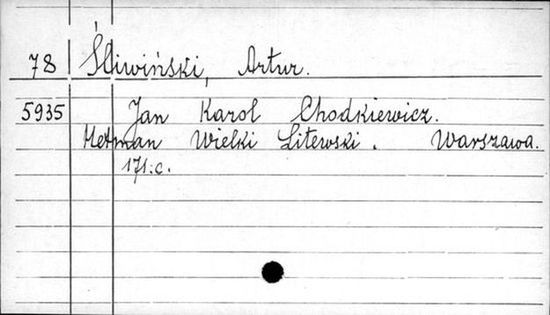 78 Śliwiński, Artur.
5935 Jan Karol Chodkiewicz.
Hetman Wielki Litewski. Warszawa.
171.c.